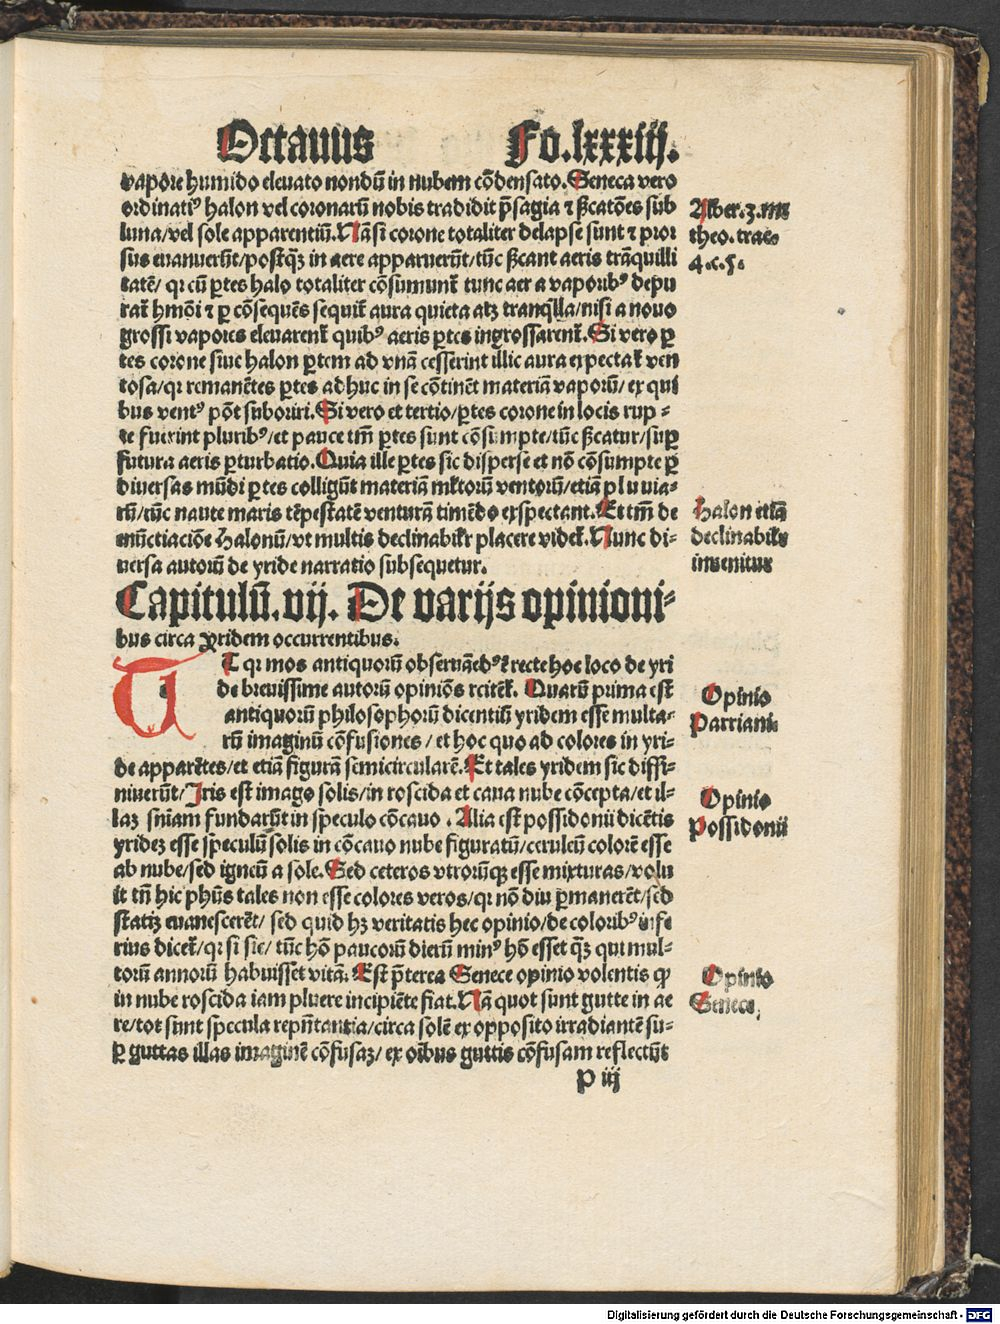 Octauus Fo.lxxxiij.
vapore humido eleuato nondū in nubem cōdensato. Seneca vero
ordinatiꝰ halon vel coronarū nobis tradidit p̄sagia ⁊ ß̄catōes sub
luna/vel sole apparentiū. Nā si corone totaliter delapse sunt ⁊ pror
sus euanuerūt/postq̄ꝫ in aere apparuerūt/tūc ß̄cant aeris trāquilli
tatē/ qꝛ cū ꝑtes halo totaliter cōsumunt̄ tunc aer a vaporibꝰ depu
rat̄ hmōi ⁊ ꝑ cōsequēs sequit̄ aura quieta atꝫ tranq̄lla/nisi a nouo
grossi vapores eleuarent̄ quibꝰ aeris ꝑtes ingrossarent̄. Si vero ꝑ
tes corone siue halon ꝑtem ad vnā cesserint illic aura expectat̄ ven
tosa/qꝛ remanētes ꝑtes adhuc in se cōtinēt materiā vaporū/ ex qui
bus ventꝰ pōt suboriri. Si vero et tertio/ꝑtes corone in locis rup-
te fuerint pluribꝰ/et pauce tm̄ ꝑtes sunt cōsumpte/tūc ß̄catur/suꝑ
futura aeris ꝑturbatio. Quia ille ꝑtes sic disperse et nō cōsumpte ꝑ
diuersas mūdi ꝑtes colligūt materiā mlt̄orū ventorū/etiā pluuia-
rū/tūc naute maris tēpestatē venturā timēdo exspectant. Et tm̄ de
enūctiaciōe halonū/vt multis declinabilr̄ placere videt̄. Nunc di-
uersa autorū de yride narratio subsequetur.
Capitulū. vij. De varijs opinioni-
bus circa yridem occurrentibus.
UT qꝛ mos antiquorū obseruādꝰ ē recte hoc loco de yri
de breuissime autorū opiniōs rcitēt̄. Quarū prima est
antiquorū philosophorū dicentiū yridem esse multa-
rū imaginū cōfusiones / et hoc quo ad colores in yri-
de apparētes/et etiā figurā semicircularē. Et tales yridem sic diffi-
niuerūt/Iris est imago solis/in roscida et caua nube cōcepta/et il-
laꝫ sn̄iam fundarūt in speculo cōcauo . Alia est possidonii dicētis
yrideꝫ esse speculū solis in cōcauo nube figuratū/ceruleū colorē esse
ab nube/sed igneū a sole. Sed ceteros vtrorūqꝫ esse mixturas/volu
it tn̄ hic ph̄us tales non esse colores veros/qꝛ nō diu ꝑmanerēt/sed
statiꝫ euanescerēt/ sed quid hꝫ veritatis hec opinio/de coloribꝰ infe
rius dicet̄/qꝛ si sic/ tūc hō paucorū dierū minꝰ hō esset q̄ꝫ qui mul-
torū annorū habuisset vitā. Est p̄terea Senece opinio volentis ꝙ
in nube roscida iam pluere incipiēte fiat. Nā quot sunt gutte in ae
re/tot sunt specula rep̄ntantia/circa solē ex opposito irradiantē su-
ꝑ guttas illas imaginē cōfusaꝫ/ ex oībus guttis cōfusam reflectūt
P iij
Alber. 3. me
theo. trac.
4.c.5.
Halon etiā
declinabile
inuenitur
Opinio
Parriani
Opinio
Possidonii
Opinio
Senece,
Digitalisierung gefördert durch die Deutsche Forschungsgemeinschaft - DFG